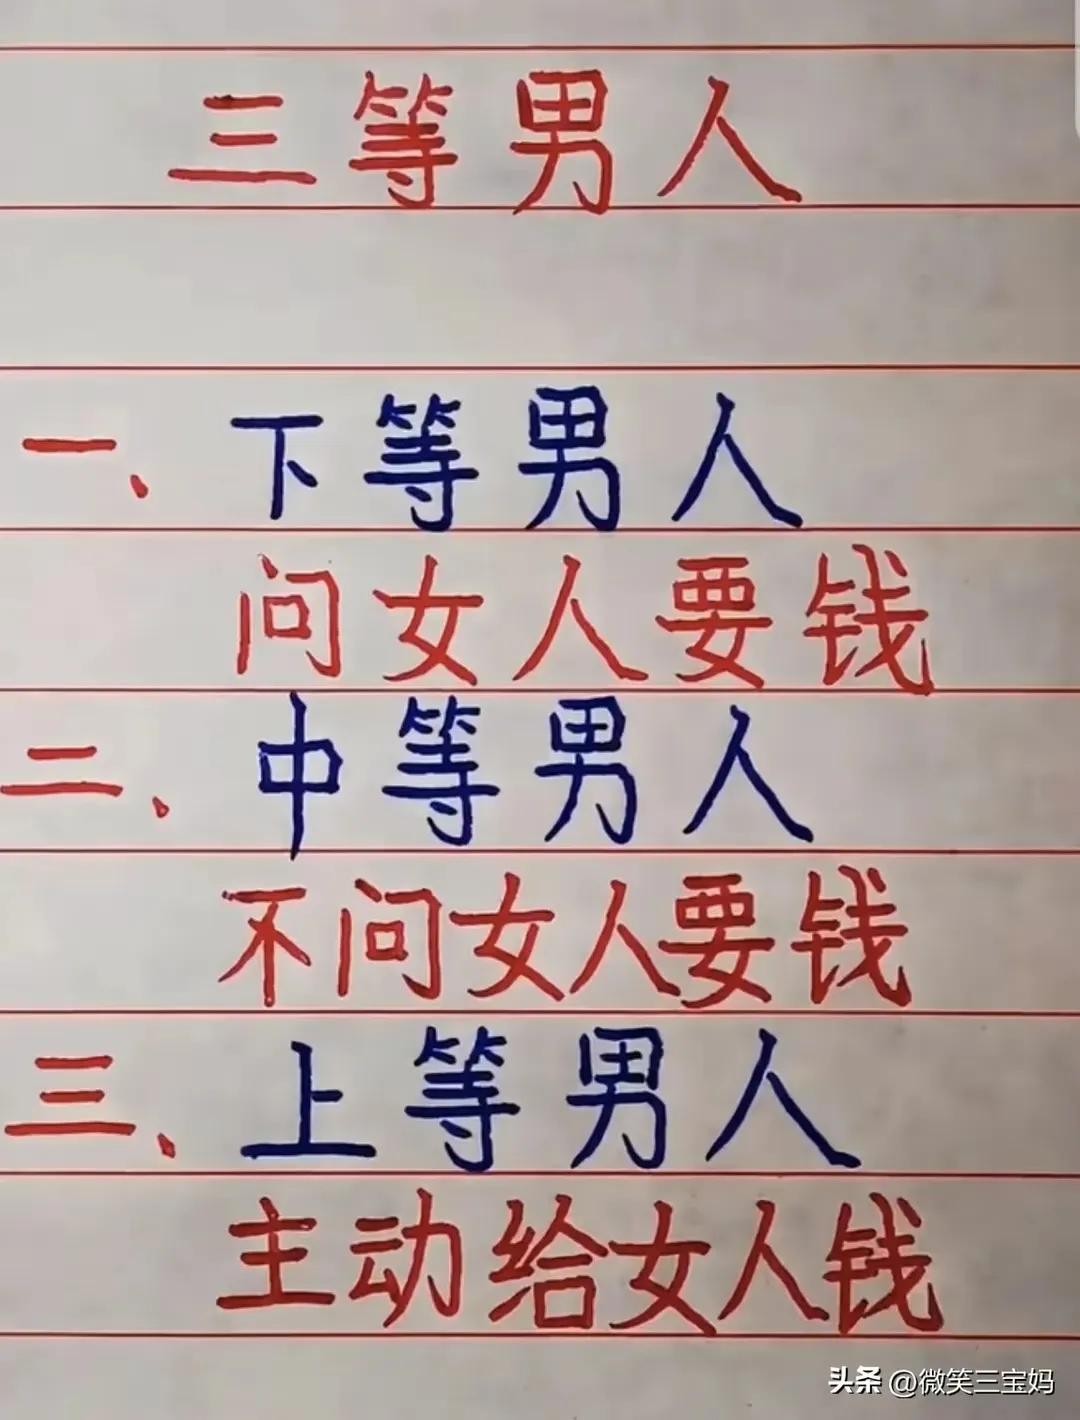 三等男人
一、下等男人
问女人要钱
二、中等男人
不问女人要钱
三、上等男人
主动给女人钱
头条 @微笑三宝妈